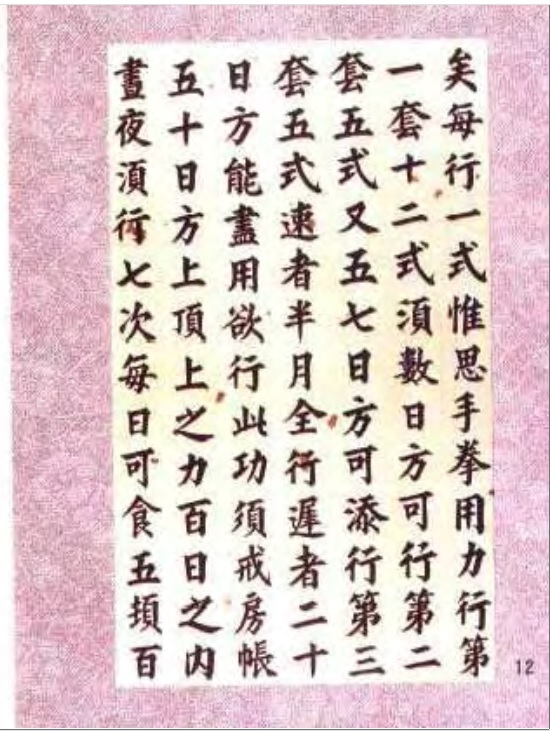 矣每行一式惟思手拳用力行第
一套十二式湏數日方可行第二
套五式又五七日方可添行第三
套五式速者半月全行遲者二十
日方能盡用欲行此功須戒房帳
五十日方上頂上之力百日之内
晝夜湏行七次每日可食五頓百
12